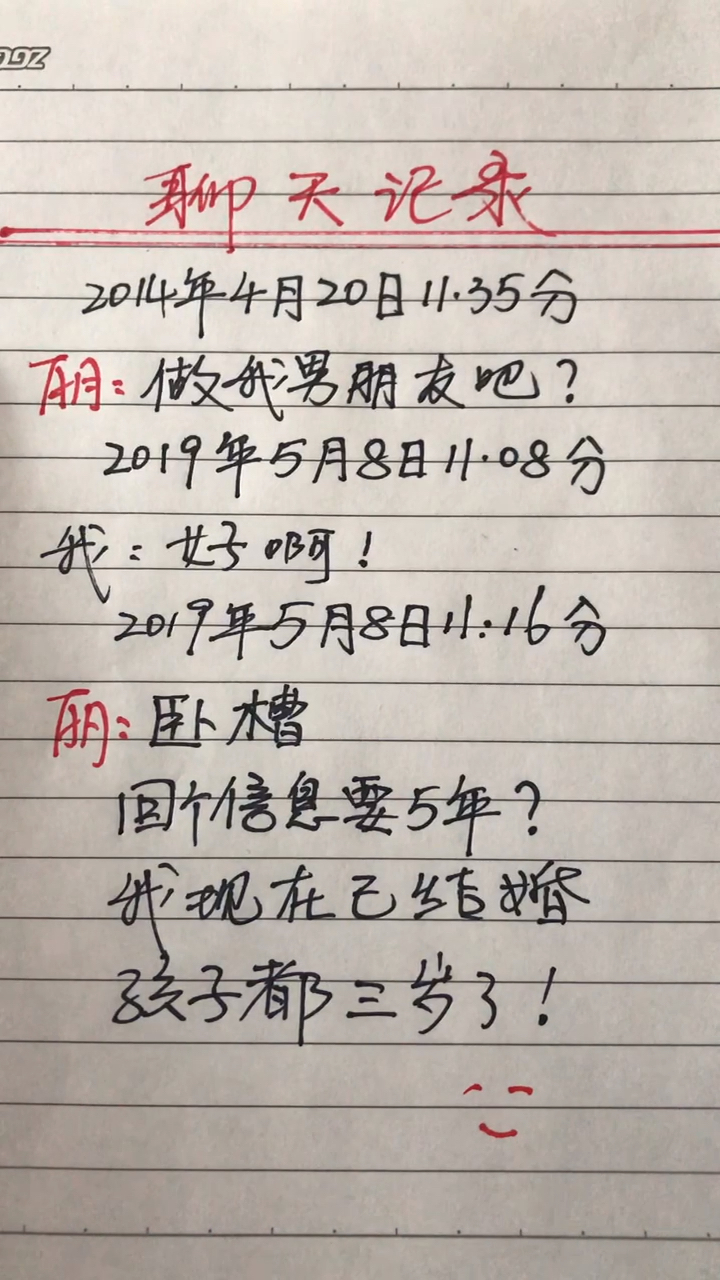 聊天记录
2014年4月20日11.35分
丽：做我男朋友吧？
2019年5月8日11.08分
我：好啊！
2019年5月8日11:16分
丽：卧槽
回个信息要5年？
我现在已结婚
孩子都三岁了！